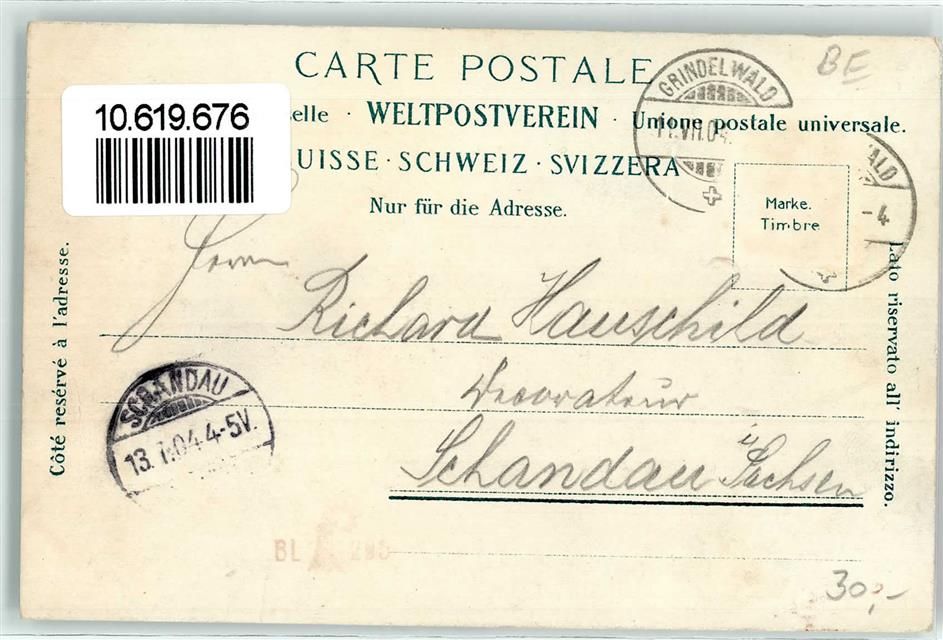 CARTE POSTALE
BE
10.619.676
selle · WELTPOSTVEREIN · Unione postale universale.
UISSE · SCHWEIZ · SVIZZERA
Nur für die Adresse.
GRINDELWALD
VII.04.
WALD
-4
Marke.
Timbre
Côté resérvé à l'adresse.
Lato riservato all' indirizzo.
Herrn
Richard Hauschild
Decorateur
Schandau i/Sachsen
SCHANDAU
13.7.04.4-5V.
BL
30,-